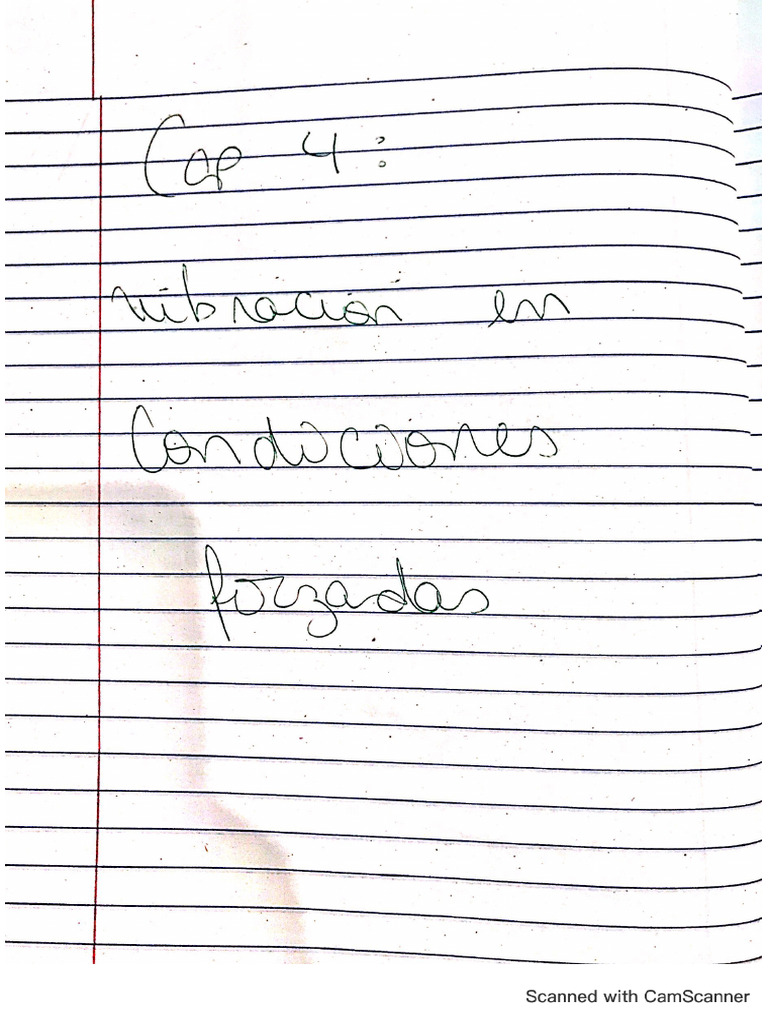 Cap 4:
vibración en
Condiciones
forzadas
Scanned with CamScanner